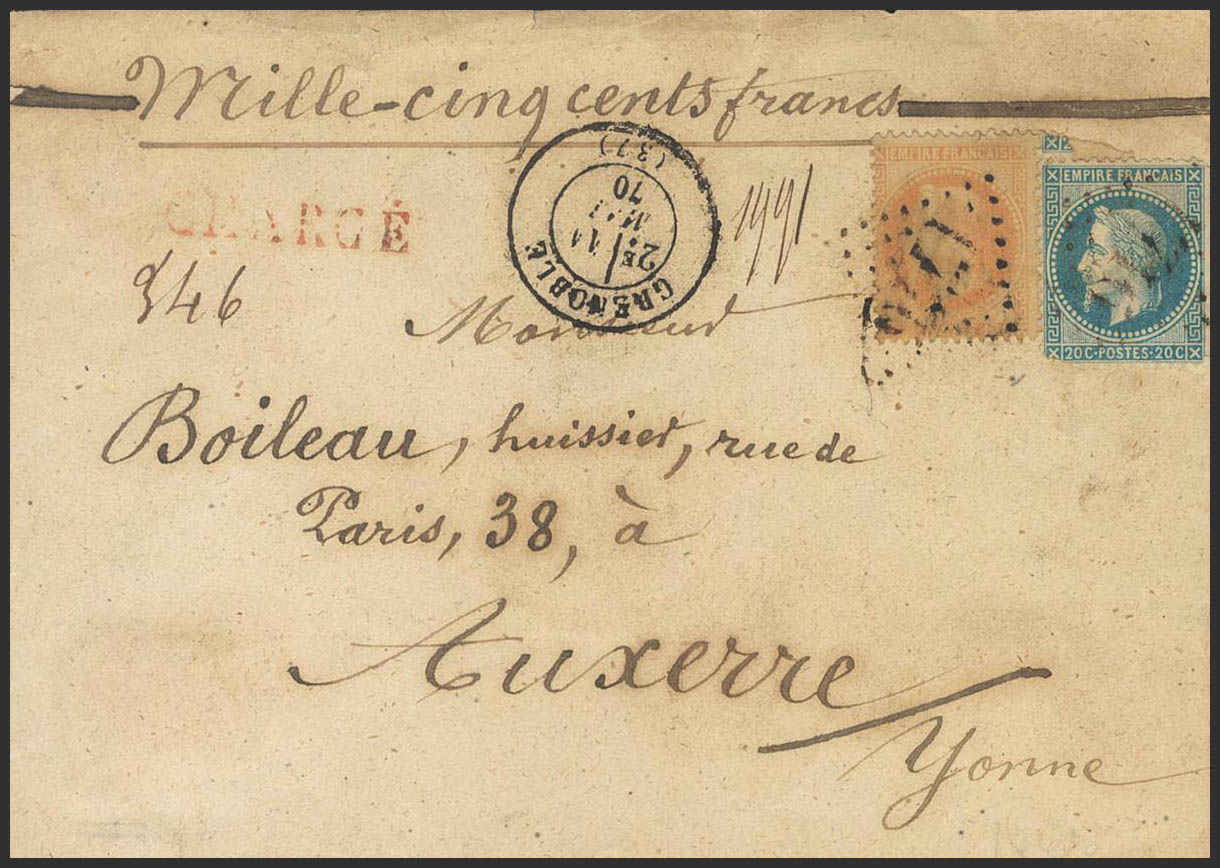 Mille-cinq cents francs
CHARGÉ
346
1991
GRENOBLE
(37)
2E
11
70
EMPIRE FRANCAIS
EMPIRE FRANCAIS
20 C·POSTES·20 C
Monsieur
Boileau, huissier, rue de
Paris, 38, à
Auxerre
Yonne